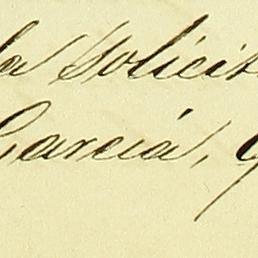 la solicit
Garciá, q